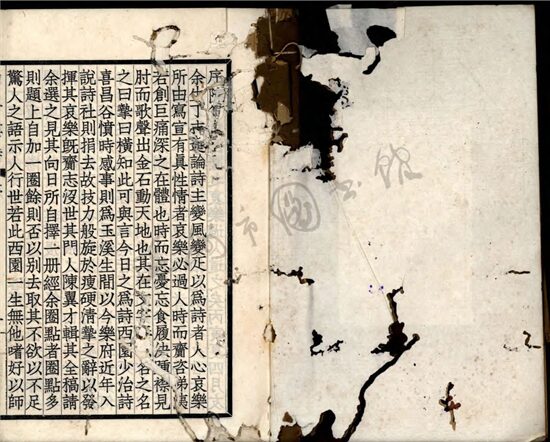 序哀樂過道之矣丙四月文
余生丁論詩主變風變疋以為詩者人心哀樂
所由寫宣有真性情者哀樂必過人時而齎咨涕洟
若創巨痛深之在體也時而忘憂忘食履決踵襟見
肘而歌聲出金石動天地也其在文字名之名
之曰摯曰橫知此可與言今日之為詩西園少治詩
喜昌谷憤時感事則為玉溪生間以今樂府近年入
說詩社則捐去故技力般旋於瘦硬清摯之辭以發
揮其哀樂旣齎志沒世其門人陳翼才輯其全稿請
余選之見其向日所自擇一册經余圈點者圈點多
則題上自加一圈餘則否以別去取其不欲以不足
驚人之語示人行世若此西園一生無他嗜好以師
市圖書館